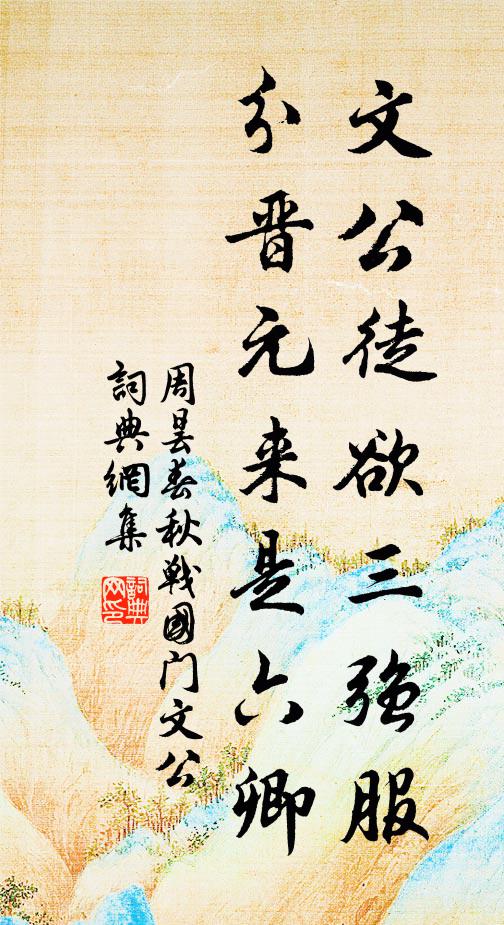 文公徒欲三强服
分晋元来是六卿
周昙春秋戰國门文公
詞典網集
詞典网印